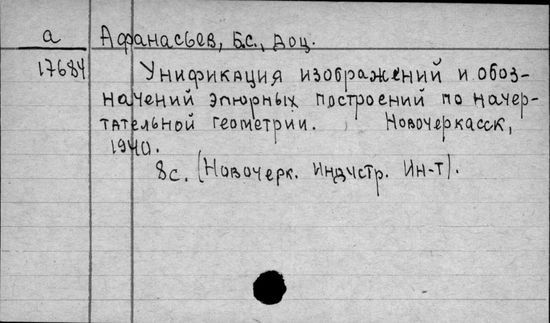 а Афанасьев, Б.С., доц.
17684 Унификация изображений и обоз-
начений эпюрных построений по начер-
тательной геометрии. Новочеркасск,
1940.
8с. (Новочерк. Индустр. Ин-т).